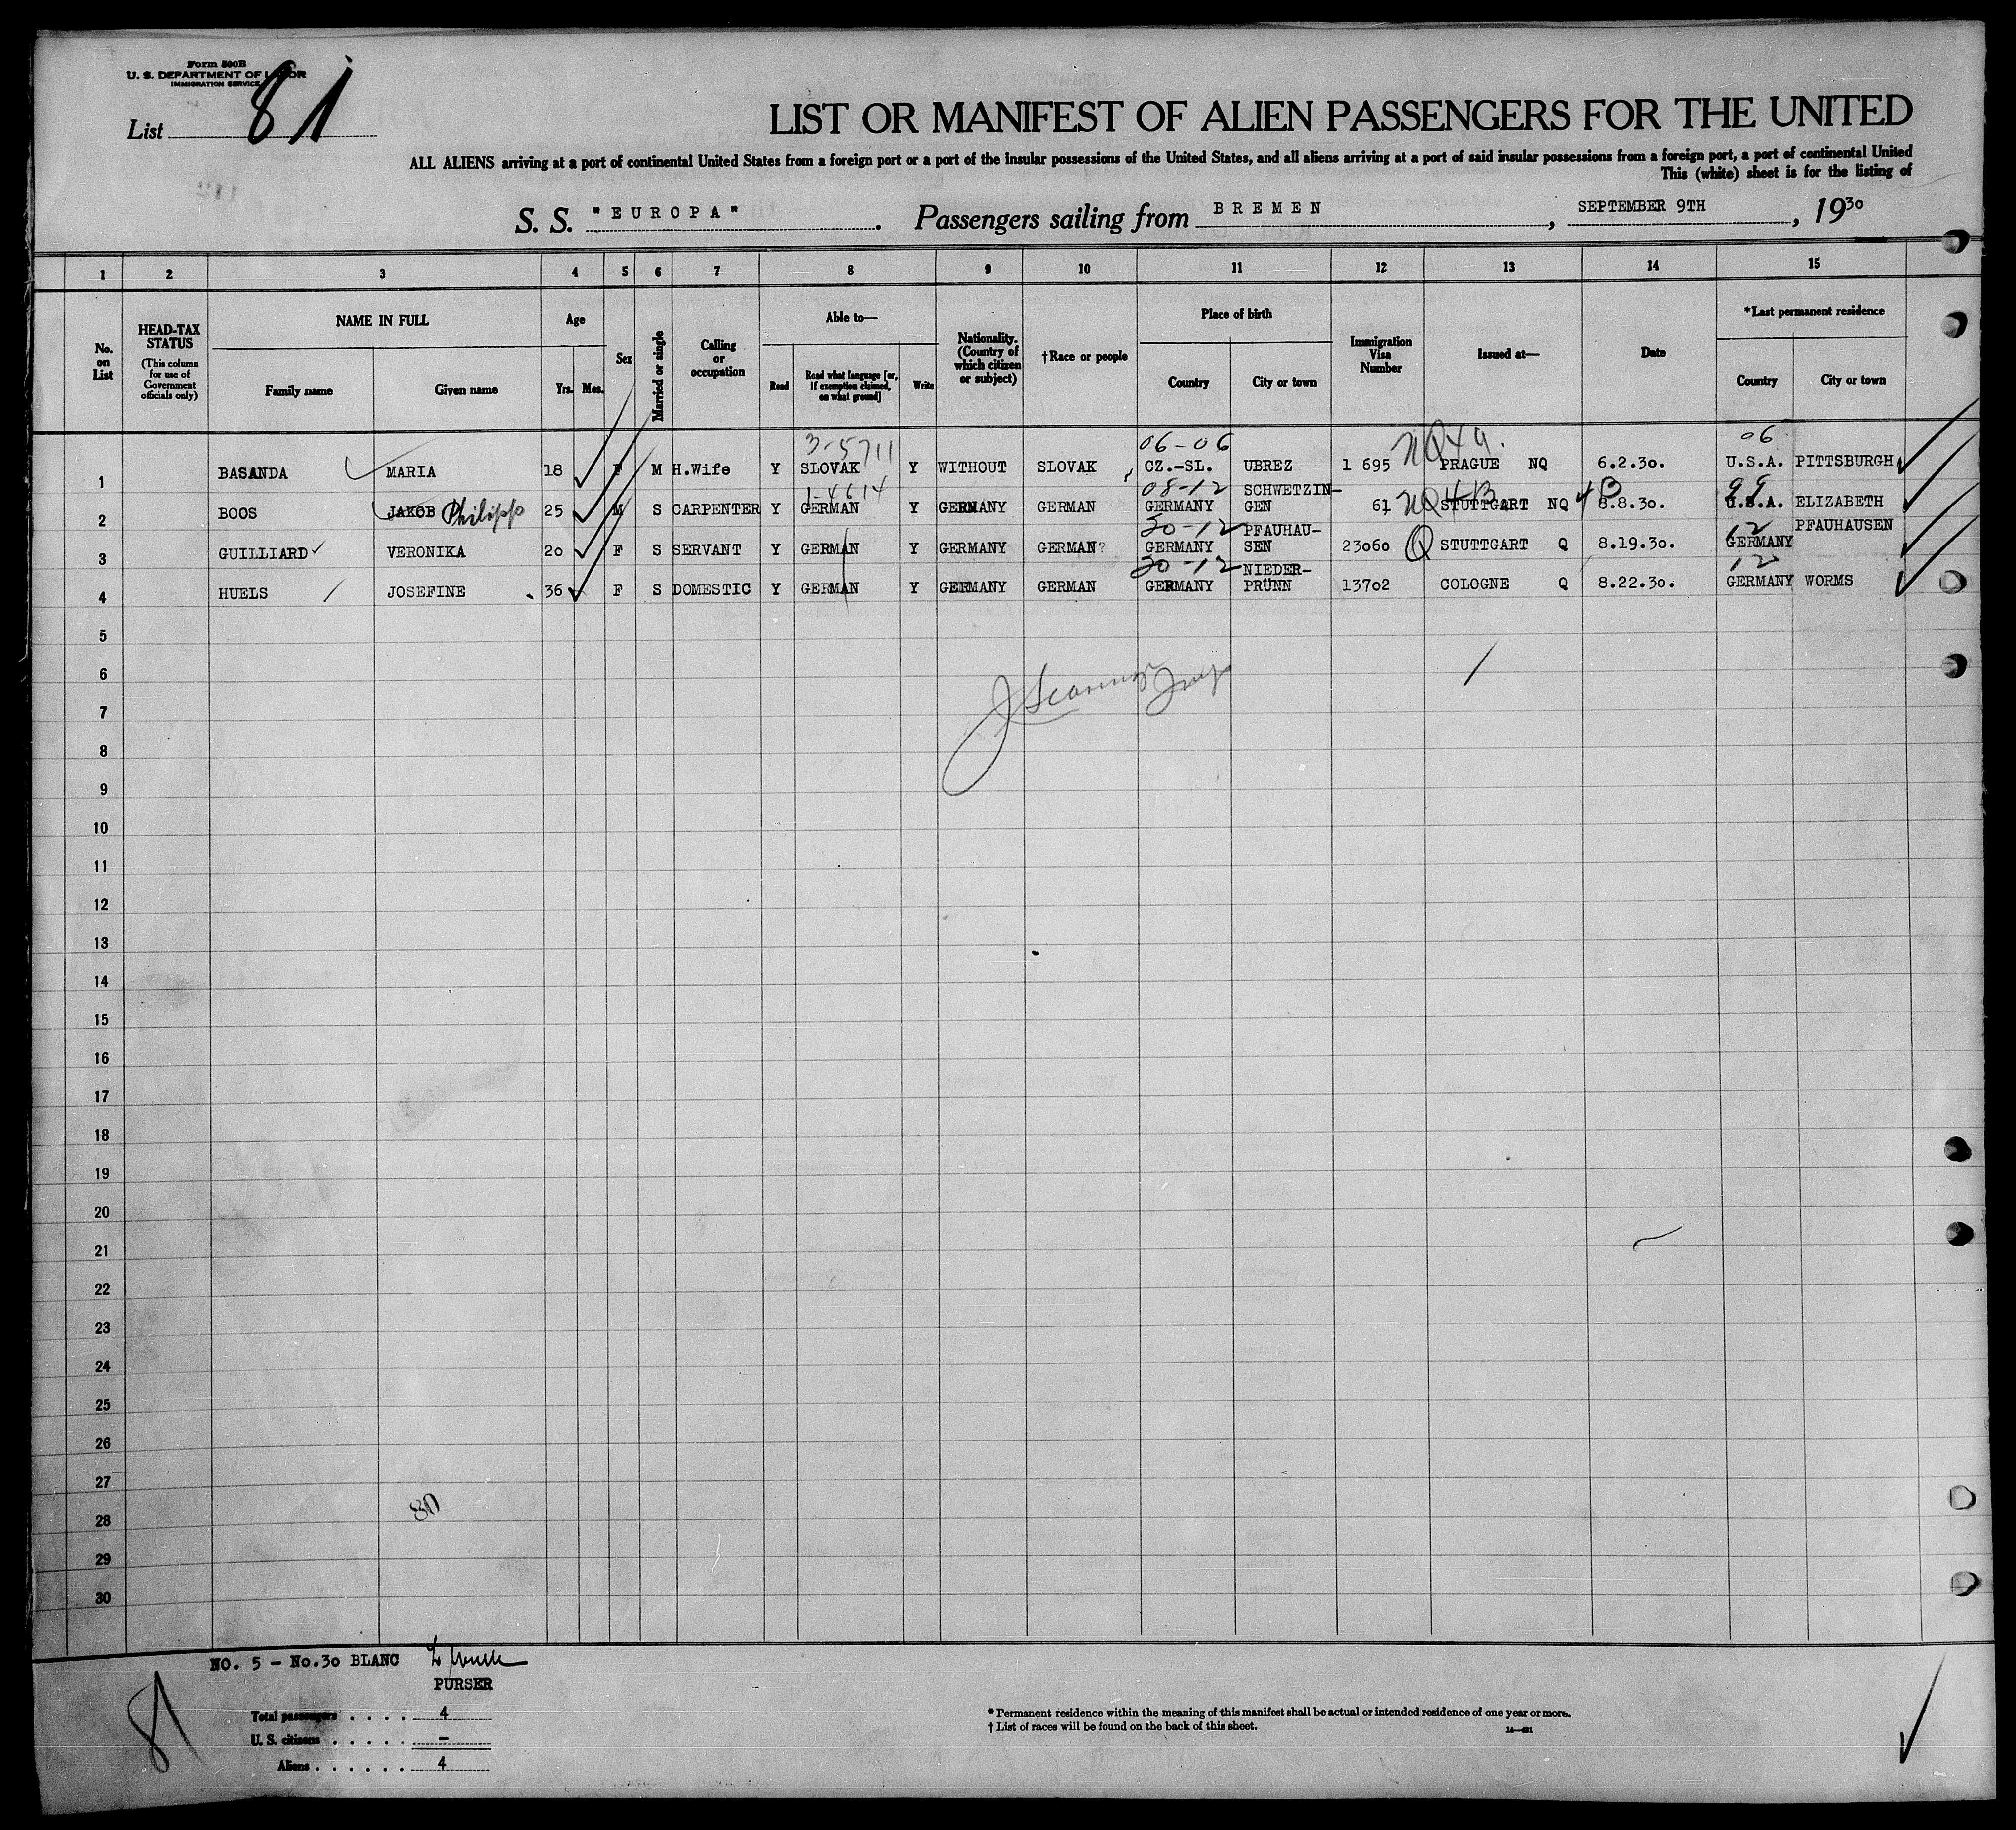 Form 500B
U. S. DEPARTMENT OF LABOR
IMMIGRATION SERVICE
List 81
LIST OR MANIFEST OF ALIEN PASSENGERS FOR THE UNITED
ALL ALIENS arriving at a port of continental United States from a foreign port or a port of the insular possessions of the United States, and all aliens arriving at a port of said insular possessions from a foreign port, a port of continental United
This (white) sheet is for the listing of
S. S. "EUROPA". Passengers sailing from BREMEN, SEPTEMBER 9TH, 1930
1 2 3 4 5 6 7 8 9 10 11 12 13 14 15
No. on List
HEAD-TAX STATUS
(This column for use of Government officials only)
NAME IN FULL
Family name Given name
Age
Yrs. Mos.
Sex
Married or single
Calling or occupation
Able to—
Read
Read what language [or, if exemption claimed, on what ground]
Write
Nationality. (Country of which citizen or subject)
†Race or people
Place of birth
Country City or town
Immigration Visa Number
Issued at—
Date
*Last permanent residence
Country City or town
3-5711 06-06 NQ 4a. 06
1 BASANDA MARIA 18 F M H.Wife Y SLOVAK Y WITHOUT SLOVAK CZ.-SL. UBREZ 1 695 PRAGUE NQ 6.2.30. U.S.A. PITTSBURGH
1-4614 08-12 SCHWETZIN- NQ 4B 4B 99
2 BOOS JAKOB Philipp 25 M S CARPENTER Y GERMAN Y GERMANY GERMAN GERMANY GEN 61 STUTTGART NQ 8.8.30. U.S.A. ELIZABETH
30-12 PFAUHAU- 12 PFAUHAUSEN
3 GUILLIARD VERONIKA 20 F S SERVANT Y GERMAN Y GERMANY GERMAN? GERMANY SEN 23060 Q STUTTGART Q 8.19.30. GERMANY
30-12 NIEDER- 12
4 HUELS JOSEFINE 36 F S DOMESTIC Y GERMAN Y GERMANY GERMAN GERMANY PRÜNN 13702 COLOGNE Q 8.22.30. GERMANY WORMS
5
6
7
8
9
10
11
12
13
14
15
16
17
18
19
20
21
22
23
24
25
26
27
80
28
29
30
NO. 5 - No.30 BLANC
PURSER
81
Total passengers . . . . 4
U. S. citizens . . . . . -
Aliens . . . . . . 4
* Permanent residence within the meaning of this manifest shall be actual or intended residence of one year or more.
† List of races will be found on the back of this sheet.
14—421